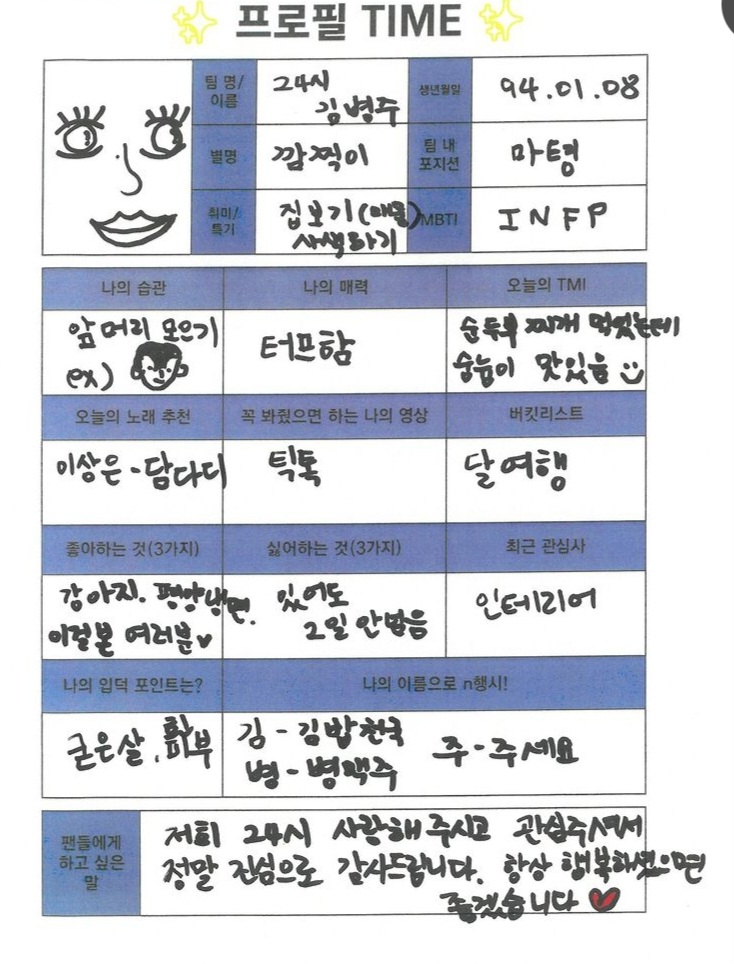 ✨ 프로필 TIME ✨
팀 명/
이름
24시
김병주
생년월일
94.01.08
별명
깜찍이
팀 내
포지션
마텽
취미/
특기
집보기(매물)
사색하기
MBTI
INFP
나의 습관
나의 매력
오늘의 TMI
앞머리 모으기
ex)
터프함
순두부 찌개 먹었는데
숭늉이 맛있음
오늘의 노래 추천
꼭 봐줬으면 하는 나의 영상
버킷리스트
이상은 - 담다디
틱톡
달여행
좋아하는 것(3가지)
싫어하는 것(3가지)
최근 관심사
강아지. 평양냉면.
이걸본 여러분♥
있어도
2일 안밤음
인테리어
나의 입덕 포인트는?
나의 이름으로 n행시!
굳은살, 피부
김 - 김밥천국
병 - 병맥주
주 - 주세요
팬들에게
하고 싶은
말
저희 24시 사랑해 주시고 관심주셔서
정말 진심으로 감사드립니다. 항상 행복하셨으면
좋겠습니다 ♥